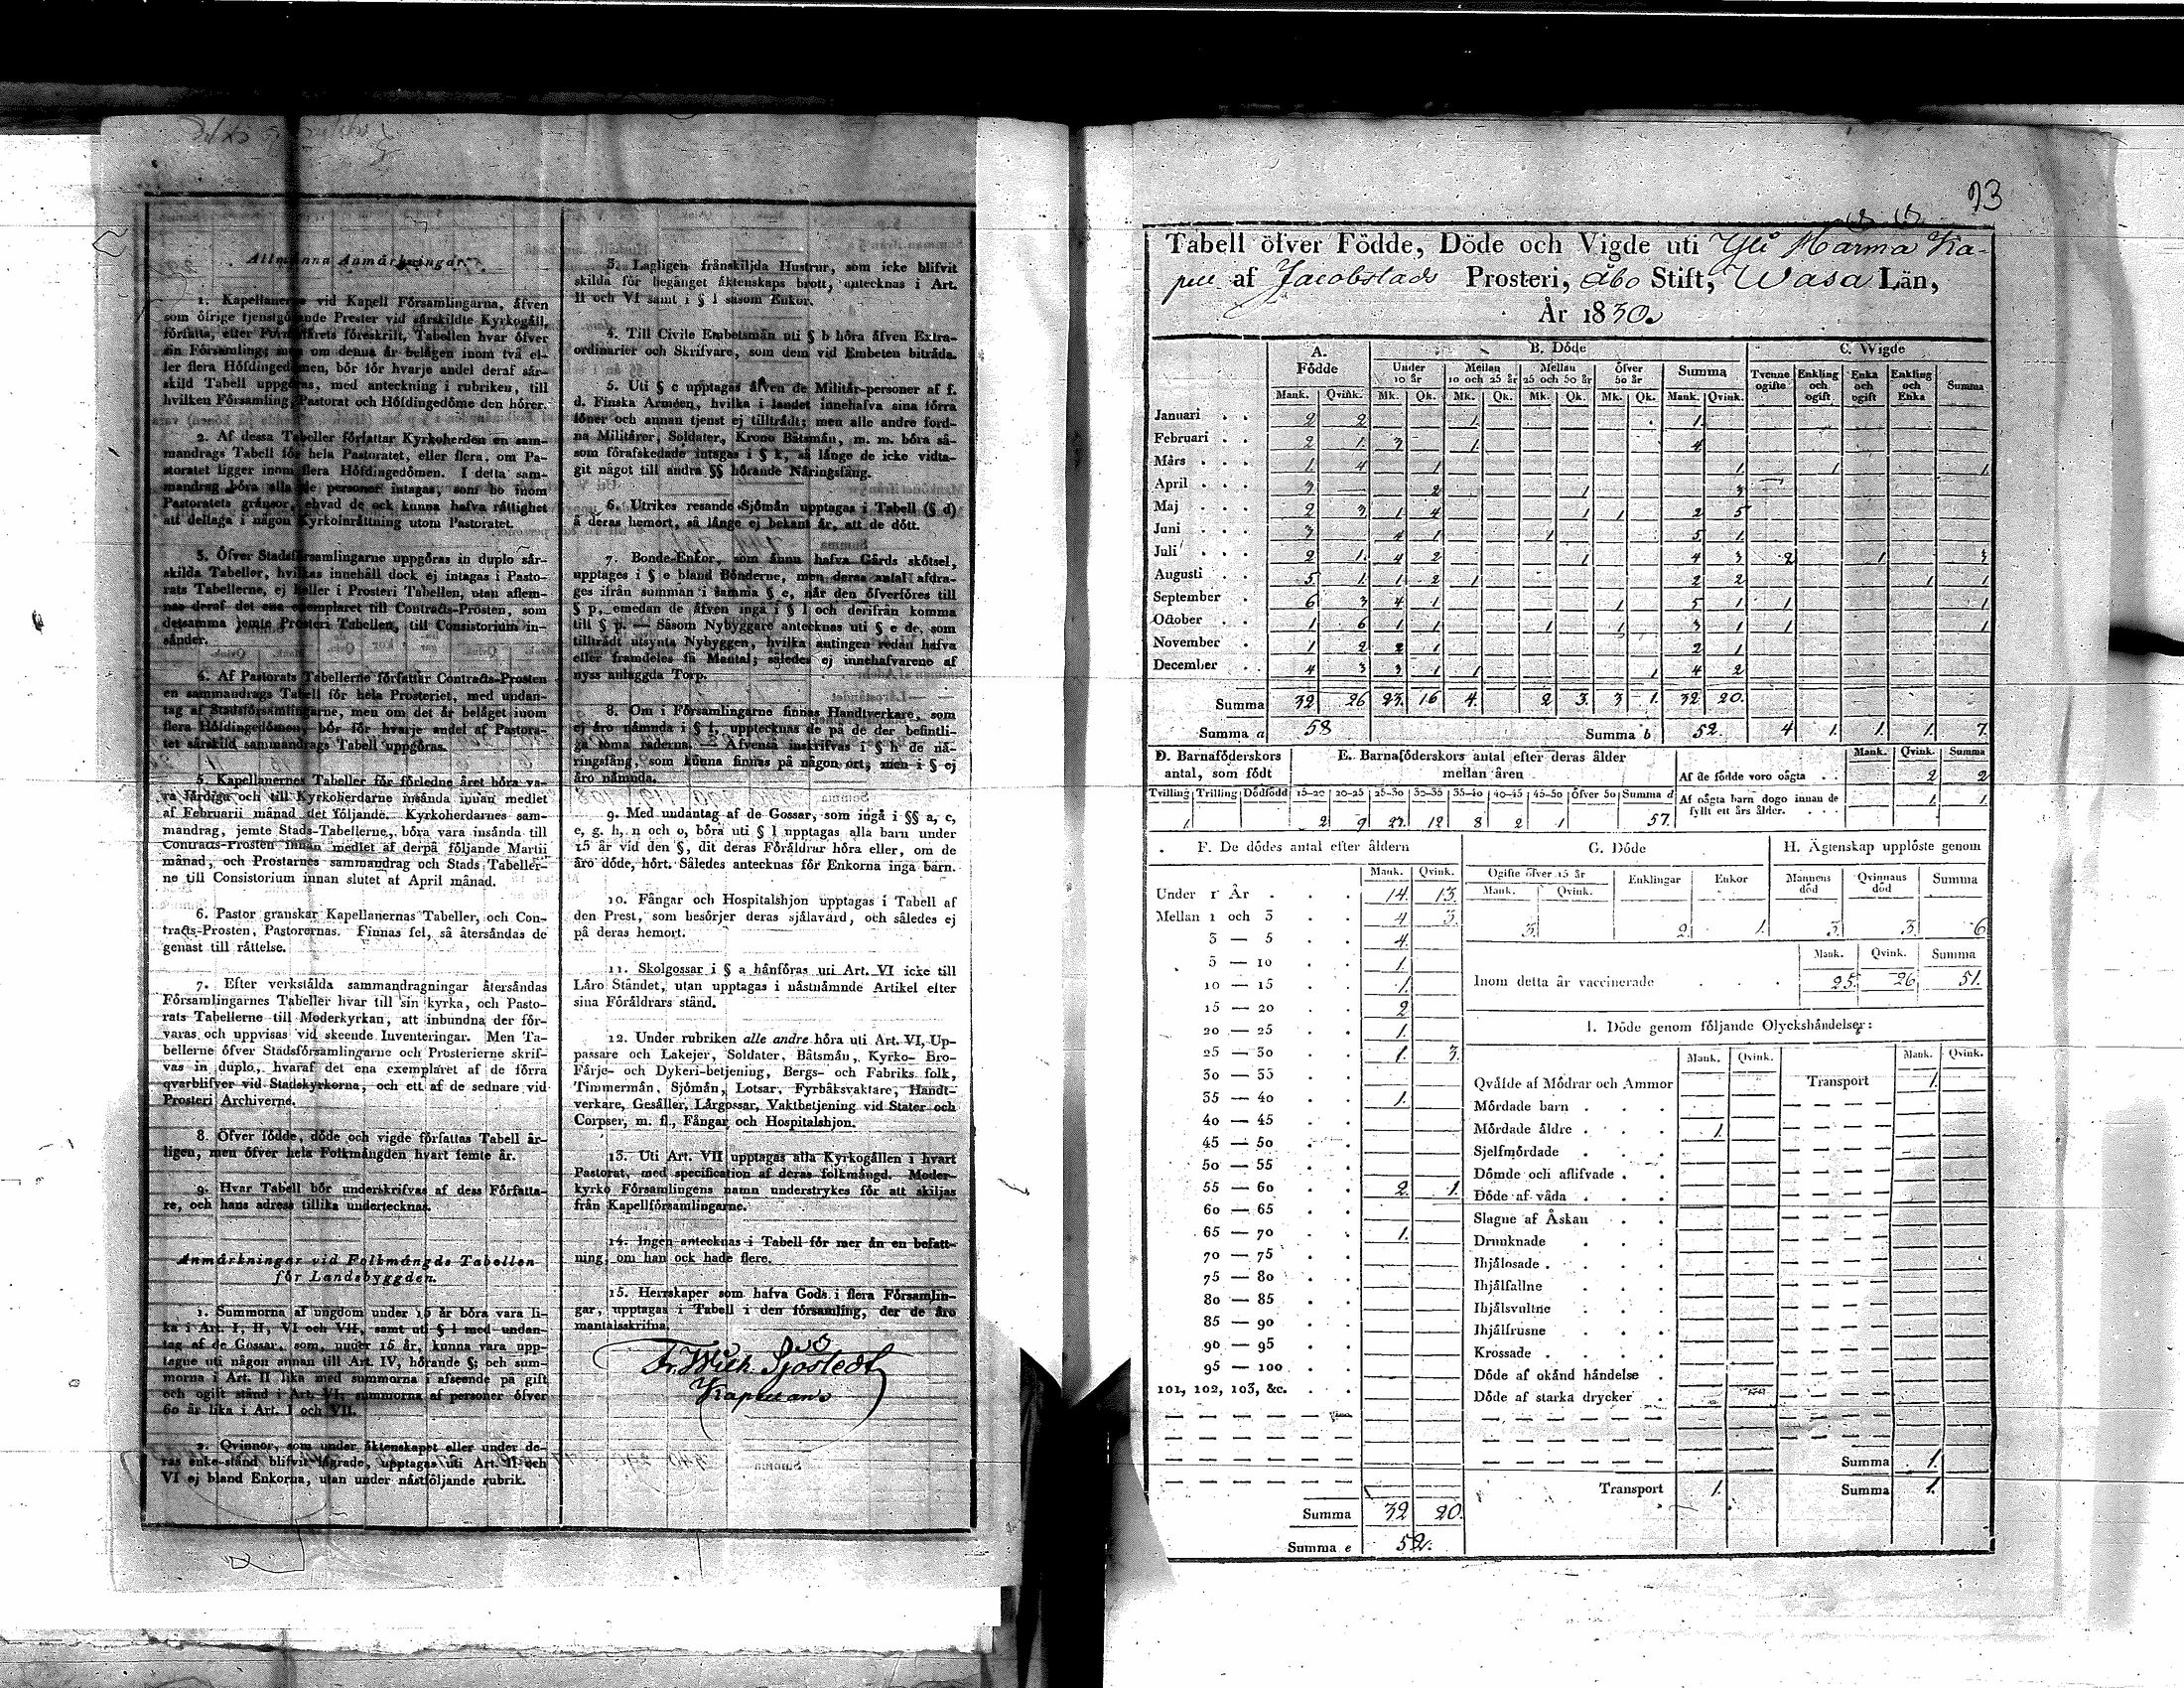 Allmänna Anmärkningar.
1. Kapellanerne vid Kapell Församlingarna, äfven
som öfrige tjenstgörande Prester vid särskildte Kyrkogäll,
författa, efter Formulärets föreskrift, Tabellen hvar öfver
sin Församling; men om denna är belägen inom två el-
ler flera Höfdingedömen, bör för hvarje andel deraf sär-
skild Tabell uppgöras, med anteckning i rubriken, till
hvilken Församling, Pastorat och Höfdingedöme den hörer.
2. Af dessa Tabeller författar Kyrkoherden en sam-
mandrags Tabell för hela Pastoratet, eller flera, om Pa-
storatet ligger inom flera Höfdingedömen. I detta sam-
mandrag böra alla de personer intagas, som bo inom
Pastoratets gränsor, ehvad de ock kunna hafva rättighet
att deltaga i någon Kyrkoinrättning utom Pastoratet.
3. Öfver Stadsförsamlingarne uppgöras in duplo sär-
skilda Tabeller, hvilkas innehåll dock ej intagas i Pasto-
rats Tabellerne, ej heller i Prosteri Tabellen, utan aflem-
nas deraf det ena exemplaret till Contracts-Prosten, som
detsamma jemte Prosteri Tabellen, till Consistorium in-
sänder.
4. Af Pastorats Tabellerne författar Contracts-Prosten
en sammandrags Tabell för hela Prosteriet, med undan-
tag af Stadsförsamlingarne, men om det är beläget inom
flera Höfdingedömen, bör för hvarje andel af Pastora-
tet särskild sammandrags Tabell uppgöras.
5. Kapellanernes Tabeller för förledne året böra va-
ra färdiga och till Kyrkoherdarne insända innan medlet
af Februarii månad det följande. Kyrkoherdarnes sam-
mandrag, jemte Stads-Tabellerne, böra vara insända till
Contracts-Prosten innan medlet af derpå följande Martii
månad, och Prostarnes sammandrag och Stads Tabeller-
ne till Consistorium innan slutet af April månad.
6. Pastor granskar Kapellanernas Tabeller, och Con-
tracts-Prosten, Pastorernas. Finnas fel, så återsändas de
genast till rättelse.
7. Efter verkställda sammandragningar återsändas
Församlingarnes Tabeller hvar till sin kyrka, och Pasto-
rats Tabellerne till Moderkyrkan, att inbundna der för-
varas och uppvisas vid skeende Inventeringar. Men Ta-
bellerne öfver Stadsförsamlingarne och Prosterierne skrif-
vas in duplo, hvaraf det ena exemplaret af de förra
qvarblifver vid Stadskyrkorna, och ett af de sednare vid
Prosteri Archiverne.
8. Öfver födde, döde och vigde författas Tabell år-
ligen, men öfver hela Folkmängden hvart femte år.
9. Hvar Tabell bör underskrifvas af dess Författa-
re, och hans adress tillika undertecknas.
Anmärkningar vid Folkmängds Tabellen
för Landsbyggden.
1. Summorna af ungdom under 15 år böra vara li-
ka i Art. I, II, VI och VII, samt uti § l med undan-
tag af de Gossar, som, under 15 år, kunna vara upp-
tagne uti någon annan till Art. IV, hörande §; och sum-
morna i Art. II lika med summorna i afseende på gift
och ogift stånd i Art. VI; summorna af personer öfver
60 år lika i Art. I och VII.
2. Qvinnor, som under äktenskapet eller under de-
ras enke-stånd blifvit lägrade, upptagas uti Art. II och
VI ej bland Enkorna, utan under nästföljande rubrik.
3. Lagligen frånskiljda Hustrur, som icke blifvit
skilda för begånget äktenskaps brott, antecknas i Art.
II och VI samt i § l såsom Enkor.
4. Till Civile Embetsmän uti § b höra äfven Extra-
ordinarier och Skrifvare, som dem vid Embeten biträda.
5. Uti § c upptages äfven de Militär-personer af f.
d. Finska Arméen, hvilka i landet innehafva sina förra
löner och annan tjenst ej tillträdt; men alle andre ford-
na Militärer, Soldater, Krono Båtsmän, m. m. böra så-
som förafskedade intagas i § k, så länge de icke vidta-
git något till andra §§ hörande Näringsfång.
6. Utrikes resande Sjömän upptagas i Tabell (§ d)
å deras hemort, så länge ej bekant är, att de dött.
7. Bonde-Enkor, som ännu hafva Gårds skötsel,
upptages i § e bland Bönderne, men deras antal afdra-
ges ifrån summan i samma § e, när den öfverföres till
§ p, emedan de äfven ingå i § l och derifrån komma
till § p. — Såsom Nybyggare antecknas uti § e de, som
tillträdt utsynta Nybyggen, hvilka antingen redan hafva
eller framdeles få Mantal; således ej innehafvarene af
nyss anlaggda Torp.
8. Om i Församlingarne finnas Handtverkare, som
ej äro nämnda i § f, upptecknas de på de der befintli-
ga toma raderna. — Äfvenså inskrifvas i § h de nä-
ringsfång, som kunna finnas på någon ort, men i § ej
äro nämnda.
9. Med undantag af de Gossar, som ingå i §§ a, c,
e, g. h, n och o, böra uti § l upptagas alla barn under
15 år vid den §, dit deras Föräldrar höra eller, om de
äro döde, hört. Således antecknas för Enkorna inga barn.
10. Fångar och Hospitalshjon upptagas i Tabell af
den Prest, som besörjer deras själavård, och således ej
på deras hemort.
11. Skolgossar i § a hänföras uti Art. VI icke till
Läro Ståndet, utan upptagas i nästnämnde Artikel efter
sina Föräldrars stånd.
12. Under rubriken alle andre höra uti Art. VI, Up-
passare och Lakejer, Soldater, Båtsmän, Kyrko- Bro-
Färje- och Dykeri-betjening, Bergs- och Fabriks folk,
Timmermän, Sjömän, Lotsar, Fyrbåksvaktare, Handt-
verkare, Gesäller, Lärgossar, Vaktbetjening vid Stater och
Corpser, m. fl., Fångar och Hospitalshjon.
13. Uti Art. VII upptagas alla Kyrkogällen i hvart
Pastorat, med specification af deras folkmängd. Moder-
kyrko Församlingens namn understrykes för att skiljas
från Kapellförsamlingarne.
14. Ingen antecknas i Tabell för mer än en befatt-
ning, om han ock hade flere.
15. Herrskaper som hafva Gods i flera Församlin-
gar, upptagas i Tabell i den församling, der de äro
mantalsskrifna.
Fr. Wilh. Sjöstedt
Kapellan
93
Tabell öfver Födde, Döde och Vigde uti Yli Härmä Ka-
pell af Jacobstads Prosteri, Åbo Stift, Wasa Län,
År 1830.
A. Födde B. Döde C. Wigde
Under 10 år Mellan 10 och 25 år Mellan 25 och 50 år Öfver 50 år Summa Tvenne ogifte Enkling och ogift Enka och ogift Enkling och Enka Summa
Mank. Qvink. Mk. Qk. Mk. Qk. Mk. Qk. Mk. Qk. Mank. Qvink.
Januari 2 2 1 1
Februari 2 1 3 1 4
Mars 1 4 1 1 1 1
April 3 2 1 3
Maj 2 3 1 4 1 1 2 5
Juni 3 4 1 1 5 1
Juli 2 1 4 2 1 4 3 2 1 3
Augusti 5 1 1 2 1 2 2 1 1
September 6 3 4 1 1 5 1 1 1
October 1 6 1 1 1 1 3 1 1 1
November 1 2 2 1 2 1
December 4 3 3 1 1 1 4 2
Summa 32 26 23 16 4 2 3 3 1 32 20
Summa a 58 Summa b 52 4 1 1 1 7
D. Barnaföderskors antal, som födt
E. Barnaföderskors antal efter deras ålder mellan åren
Mank. Qvink. Summa
Af de födde voro oägta 2 2
Af oägta barn dogo innan de fyllt ett års ålder. 1 1
Tvilling Trilling Dödfödd 15-20 20-25 25-30 30-35 35-40 40-45 45-50 Öfver 50 Summa d
1 2 9 23 12 8 2 1 57
F. De dödes antal efter åldern
Mank. Qvink.
Under 1 År 14 13
Mellan 1 och 3 4 3
3 — 5 4
5 — 10 1
10 — 15 1
15 — 20 2
20 — 25 1
25 — 30 1 3
30 — 35
35 — 40 1
40 — 45
45 — 50
50 — 55
55 — 60 2 1
60 — 65
65 — 70 1
70 — 75
75 — 80
80 — 85
85 — 90
90 — 95
95 — 100
101, 102, 103, &c.
Summa 32 20
Summa e 52.
G. Döde
Ogifte öfver 15 år Enklingar Enkor
Mank. Qvink.
3 2 1
H. Ägtenskap upplöste genom
Mannens död Qvinnans död Summa
3 3 6
Mank. Qvink. Summa
Inom detta år vaccinerade 25 26 51.
I. Döde genom följande Olyckshändelser:
Mank. Qvink. Mank. Qvink.
Qväfde af Mödrar och Ammor Transport 1
Mördade barn
Mördade äldre 1
Sjelfmördade
Dömde och aflifvade
Döde af våda
Slagne af Åskan
Drunknade
Ihjälosade
Ihjälfallne
Ihjälsvultne
Ihjälfrusne
Krossade
Döde af okänd händelse
Döde af starka drycker
Summa 1
Transport 1 Summa 1